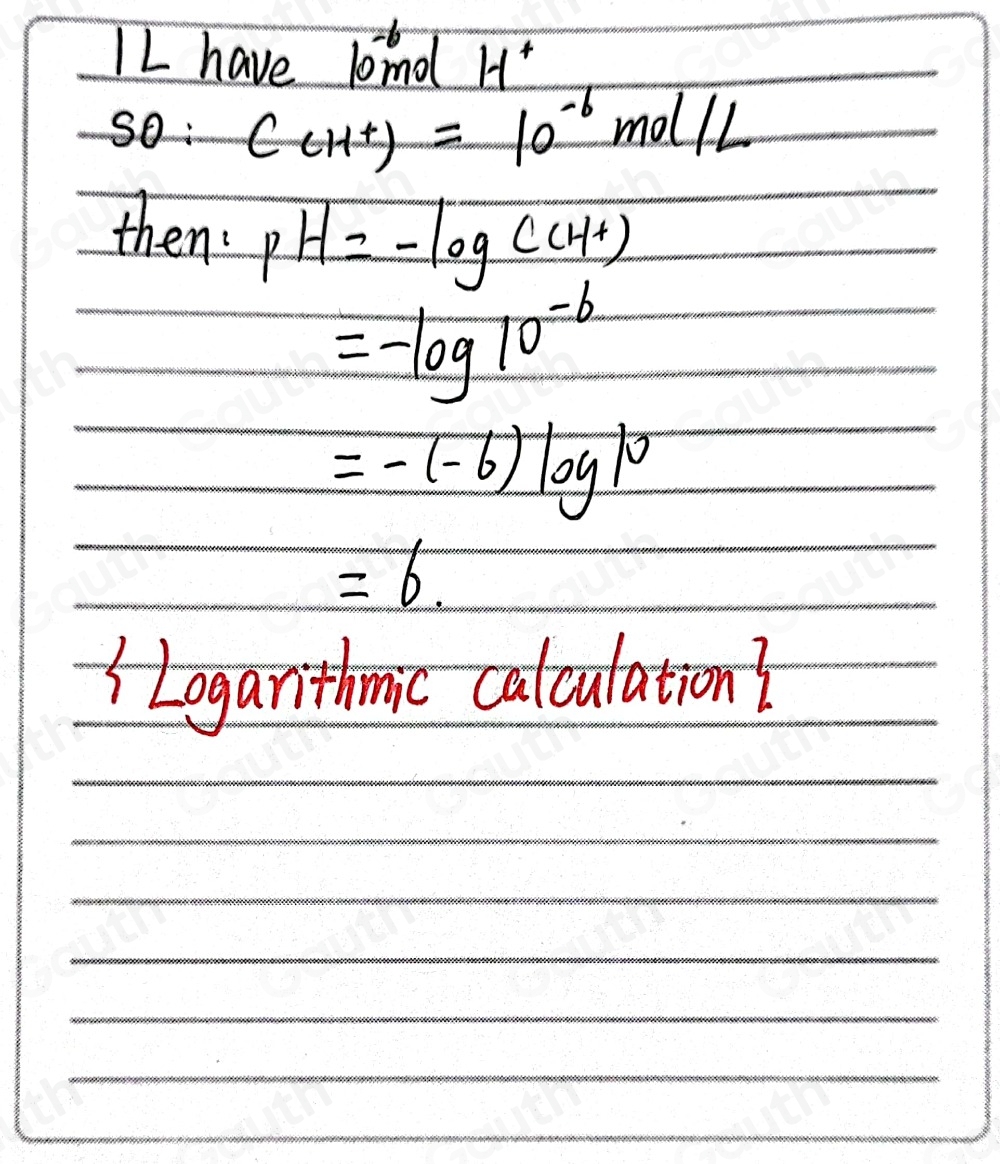 1L have 10⁻⁶mol H⁺
so: C(H+) = 10⁻⁶ mol/L
then: pH = -log C(H+)
= -log 10⁻⁶
= -(-6) log 10
= 6.
{Logarithmic calculation}.